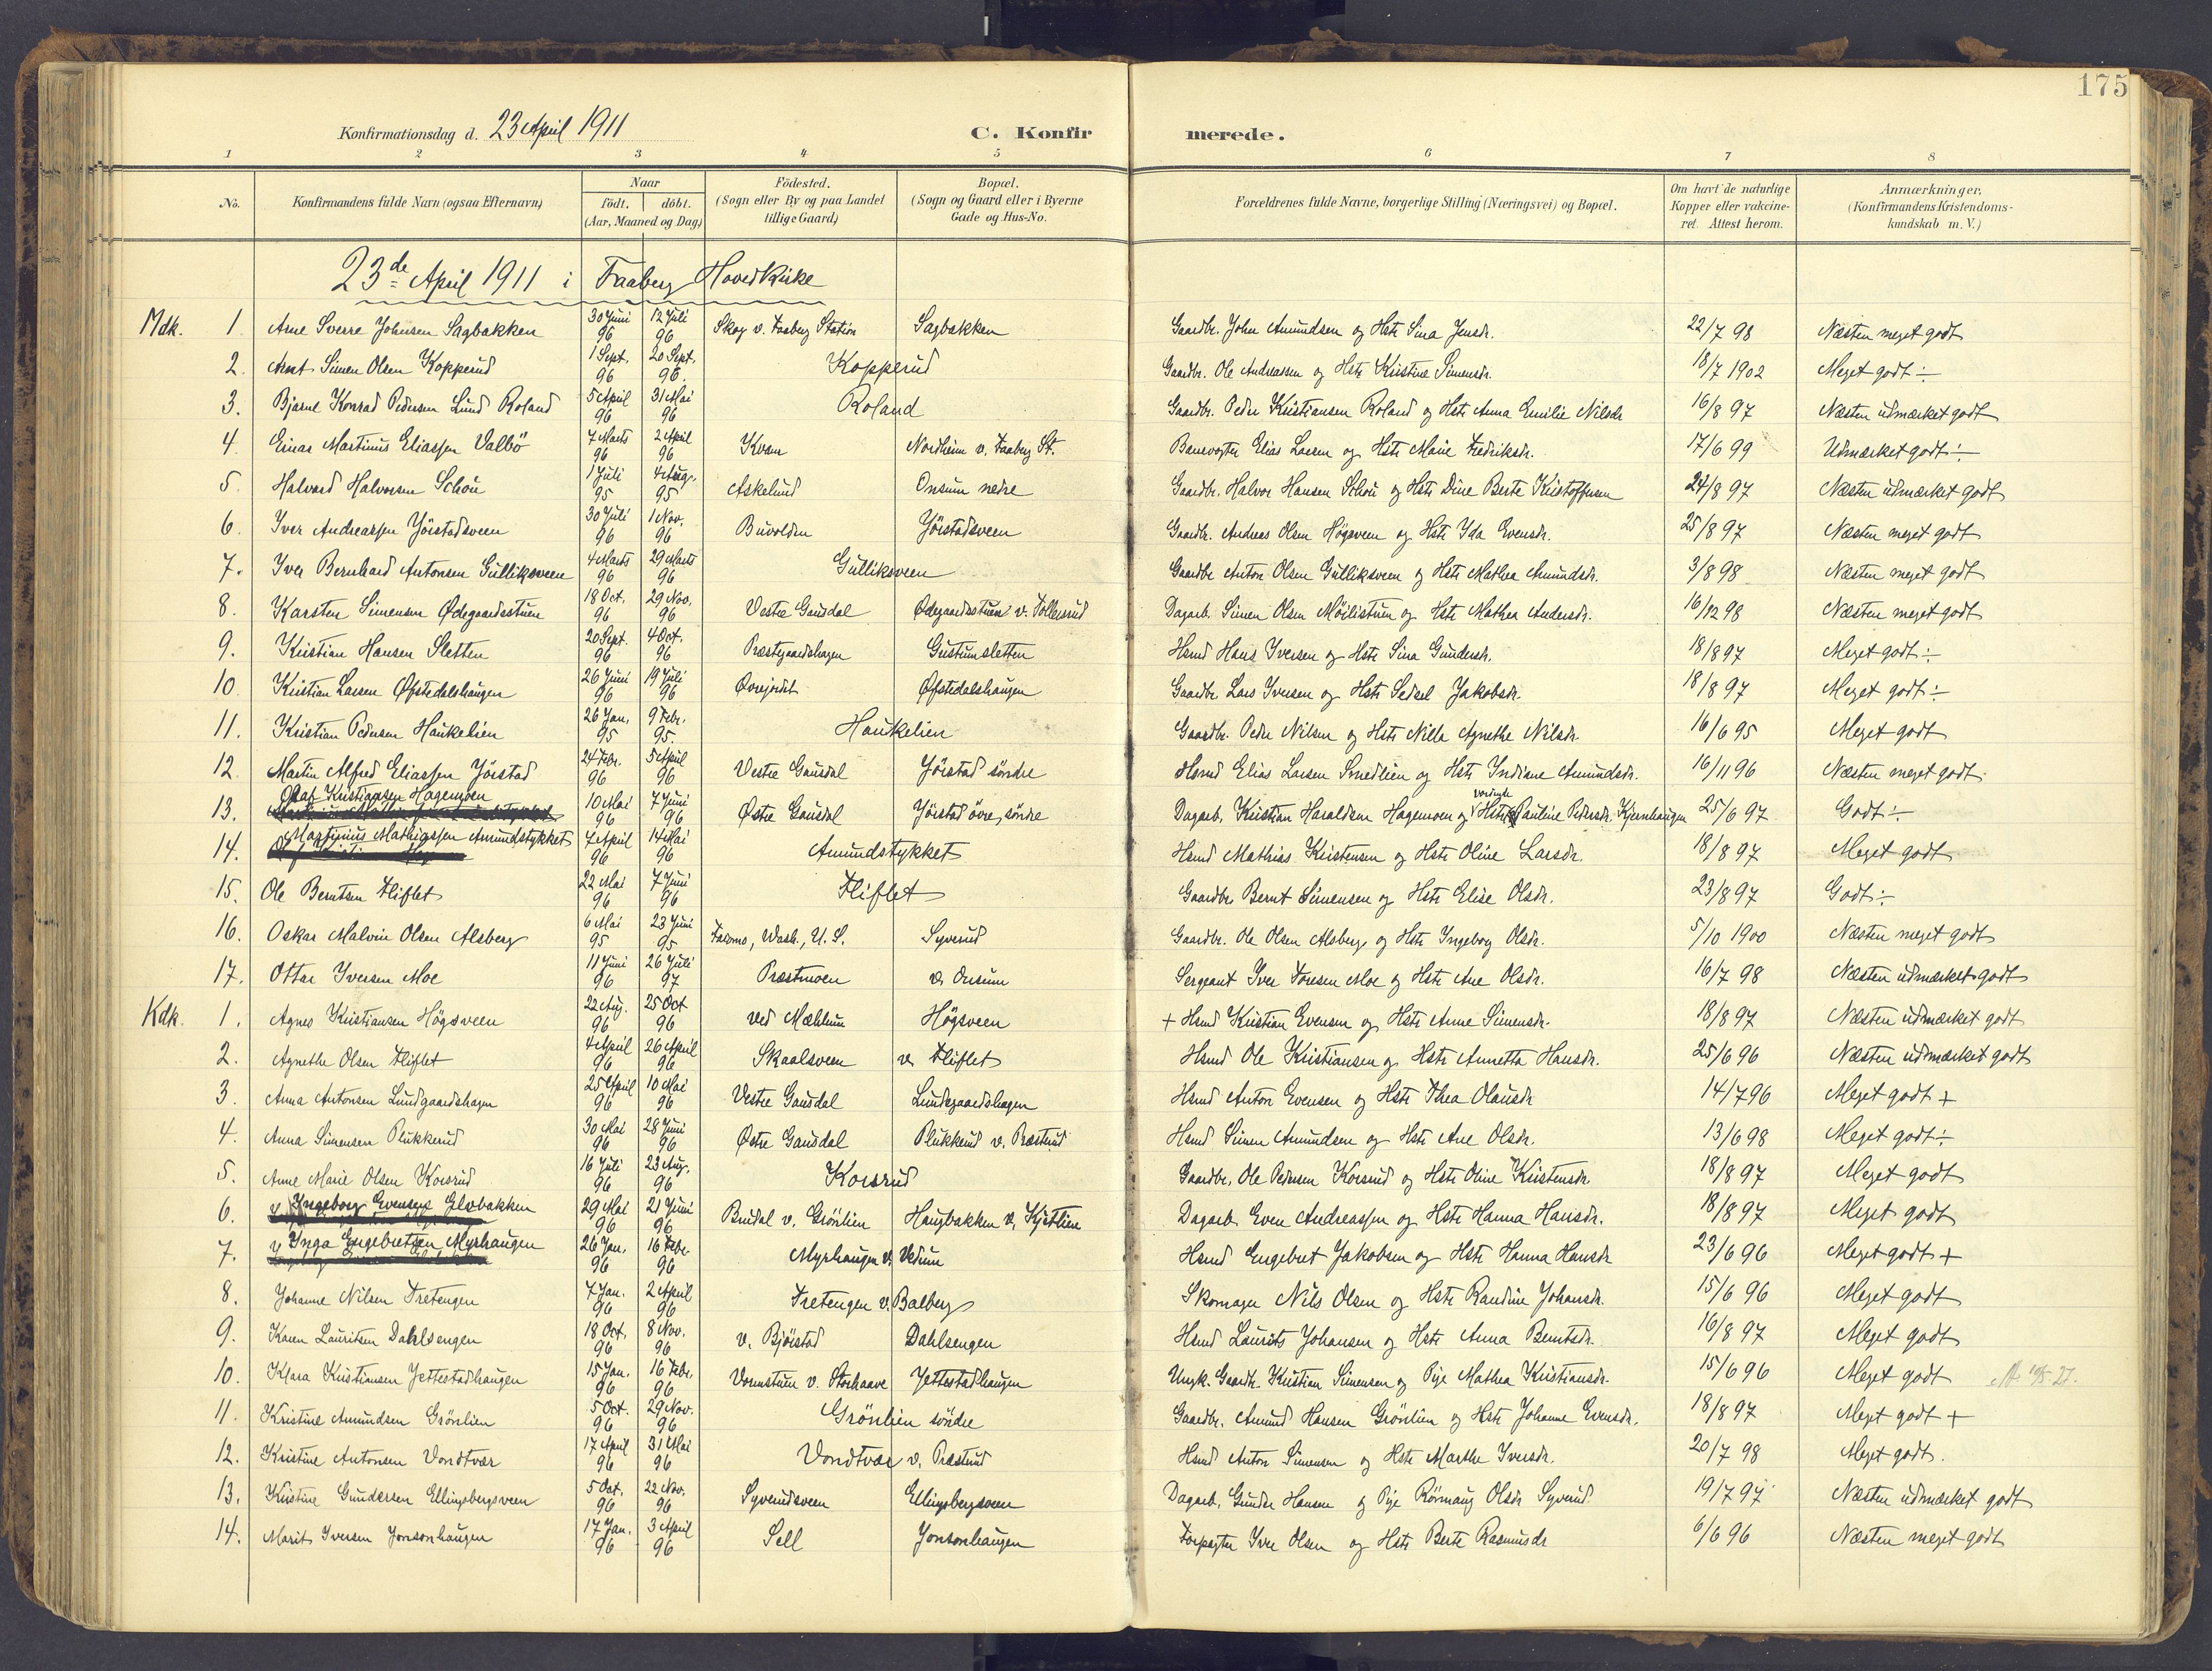 175
Konfirmationsdag d. 23 April 1911 C. Konfirmerede.
1 2 3 4 5 6 7 8
No. Konfirmandens fulde Navn (ogsaa Efternavn) Naar født. døbt. (Aar, Maaned og Dag) Födested. (Sogn eller By og paa Landet tillige Gaard) Bopæl. (Sogn og Gaard eller i Byerne Gade og Hus-No. Forældrenes fulde Navne, borgerlige Stilling (Næringsvei) og Bopæl. Om havt de naturlige Kopper eller vakcineret. Attest herom. Anmærkninger. (Konfirmandens Kristendomskundskab m. V.)
23de April 1911 i Faaberg Hovedkirke
Mdk. 1. Arne Sverre Johnsen Sagbakken 30 Juni 96 12 Juli 96 Skog v. Faaberg Station Sagbakken Gaardbr. John Amundsen og Hstr Sina Jensdr. 22/7 98 Næsten meget godt
2. Arnt Simen Olsen Kopperud 1 Sept. 96 20 Sept. 96. Kopperud Gaardbr. Ole Andreassen og Hstr Kristine Simensdr. 18/7 1902 Meget godt ÷
3. Bjarne Konrad Pedersen Lund Roland 5 April 96 31 Mai 96 Roland Gaardbr. Peder Kristiansen Roland og Hstr Anna Emilie Nilsdr 16/8 97 Næsten udmærket godt
4. Einar Martinus Eliassen Valbö 7 Marts 96 2 April 96 Kvam Nordheim v. Faaberg St. Banevogter Elias Larsen og Hstr Marie Fredriksdr. 17/6 99 Udmærket godt ÷
5. Halvard Halvorsen Schou 1 Juli 95 4 Aug. 95 Askelund Onsum nedre Gaardbr. Halvor Hansen Schou og Hstr Dine Berte Kristoffersen 24/8 97 Næsten udmærket godt
6. Iver Andreassen Jöistadsveen 30 Juli 96 1 Nov. 96 Buvolden Jöistadsveen Gaardbr. Andreas Olsen Högsveen og Hstr Ida Evensdr. 25/8 97 Næsten meget godt
7. Iver Bernhard Antonsen Gulliksveen 4 Marts 96 29 Marts 96 Gulliksveen Gaardbr Anton Olsen Gulliksveen og Hstr Mathea Amundsdr. 3/8 98 Næsten meget godt
8. Karsten Simensen Ødegaardsstuen 18 Oct. 96 29 Nov. 96 Vestre Gausdal Ødegaardsstuen v. Tollersrud Dagarb. Simen Olsen Möilistuen og Hstr Mathea Andersdr. 16/12 98 Næsten meget godt
9. Kristian Hansen Sletten 20 Sept. 96 4 Oct. 96 Præstegaardshagen Gustumsletten Hsmd Hans Iversen og Hstr Sina Gundersdr. 18/8 97 Meget godt ÷
10 Kristian Larsen Øfstedalshaugen 26 Juni 96 19 Juli 96 Øvrejordet Øfstedalshaugen Gaardbr Lars Iversen og Hstr Sedsel Jakobsdr. 18/8 97 Meget godt ÷
11. Kristian Pedersen Haukelien 26 Jan. 95 9 Febr. 95 Haukelien Gaardbr. Peder Nilsen og Hstr Nilla Agnethe Nilsdr. 16/6 95 Meget godt
12. Martin Alfred Eliassen Jöistad 24 Febr. 96 5 April 96 Vestre Gausdal Jöistad söndre Hsmd Elias Larsen Smedlien og Hstr Indiane Amundsdr. 16/11 96 Næsten meget godt.
13. Olaf Kristiansen Hagemoen 10 Mai 96 7 Juni 96 Østre Gausdal Jöistad övre, söndre Dagarb. Kristian Haraldsen Hagemoen og Hstr Pauline Pedersdr. Kjernhaugen 25/6 97 Godt ÷
14. Martinius Mathiassen Amundstykket 7 April 96 14 Mai 96 Amundstykket Hsmd Mathias Kristensen og Hstr Oline Larsdr. 18/8 97 Meget godt
15. Ole Berntsen Fliflet 22 Mai 96 7 Juni 96 Fliflet Gaardbr. Bernt Simensen og Hstr Elise Olsdr. 23/8 97 Godt ÷
16. Oskar Malvin Olsen Alsberg 6 Mai 95 23 Juni 95 Wash., U. S. Syverud Gaardbr. Ole Olsen Alsberg og Hstr Ingeborg Olsdr. 5/10 1900 Næsten meget godt
17. Ottar Iversen Moe 11 Juni 96 26 Juli 97 Præstmoen v. Onsum Sergeant Iver Toresen Moe og Hstr Ane Olsdr. 16/7 98 Næsten udmærket godt
Kdk. 1. Agnes Kristiansen Högsveen 22 Aug. 96 25 Oct 96 ved Mæhlum Högsveen + Hsmd Kristian Evensen og Hstr Anne Simensdr. 18/8 97 Næsten udmærket godt
2. Agnethe Olsen Fliflet 4 April 96 26 April 96 Skaalsveen v. Fliflet Hsmd Ole Kristiansen og Hstr Annetta Hansdr. 25/6 96 Næsten udmærket godt
3. Anna Antonsen Lundgaardshagen 25 April 96 10 Mai 96 Vestre Gausdal Lundegaardshagen Hsmd Anton Evensen og Hstr Thea Olausdr 14/7 96 Meget godt +
4. Anna Simensen Plukkerud 30 Mai 96 28 Juni 96 Østre Gausdal Plukkerud v. Præstrud Hsmd Simen Amundsen og Hstr Ane Olsdr. 13/6 98 Meget godt ÷
5. Anne Marie Olsen Korsrud 16 Juli 96 23 Aug. 96 Korsrud Gaardbr. Ole Pedersen Korsrud og Hstr Oline Kristensdr. 18/8 97 Meget godt
6. Ingeborg Evensen Elvbakken 29 Mai 96 21 Juni 96 Brudal v. Grönlien Haugbakken v. Kjetlien Dagarb Even Andreassen og Hstr Hanna Hansdr. 18/8 97 Meget godt
7. Inga Engebretsen Myrhaugen 26 Jan. 96 16 Febr. 96 Myrhaugen v. Vedum Hsmd Engebret Jakobsen og Hstr Hanna Hansdr 23/6 96 Meget godt +
8. Johanne Nilsen Fretengen 7 Jan. 96 2 April 96 Fretengen v. Balberg Skomager Nils Olsen og Hstr Randine Johansdr. 15/6 96 Meget godt
9. Karen Lauritsen Dahlsengen 18 Oct. 96 8 Nov. 96 v. Bjöistad Dahlsengen Hsmd Laurits Johansen og Hstr Anna Berntsdr. 16/8 97 Meget godt
10. Klara Kristiansen Jettestadhaugen 15 Jan. 96 16 Febr. 96 Vormstuen v. Storhaave Jettestadhaugen Ungk. Gaardbr. Kristian Simensen og Pige Mathea Kristiansdr. 15/6 96 Meget godt
11. Kristine Amundsen Grönlien 5 Oct. 96 29 Nov. 96 Grönlien söndre Gaardbr. Amund Hansen Grönlien og Hstr Johanne Evensdr. 18/8 97 Meget godt +
12. Kristine Antonsen Vondtvær 17 April 96 31 Mai 96 Vondtvær v. Præstrud Hsmd Anton Simensen og Hstr Marthe Iversdr. 20/7 98 Meget godt.
13. Kristine Gundersen Ellingsbergsveen 5 Oct. 96 22 Nov. 96 Syverudsveen Ellingsbergsveen Dagarb. Gunder Hansen og Pige Rönnaug Olsdr Syverud 19/7 97 Næsten udmærket godt
14. Marit Iversen Jonsonhaugen 17 Jan. 96 3 April 96 Sell Jonsonhaugen Forpagter Iver Olsen og Hstr Berte Rasmusdr 6/6 96 Næsten meget godt